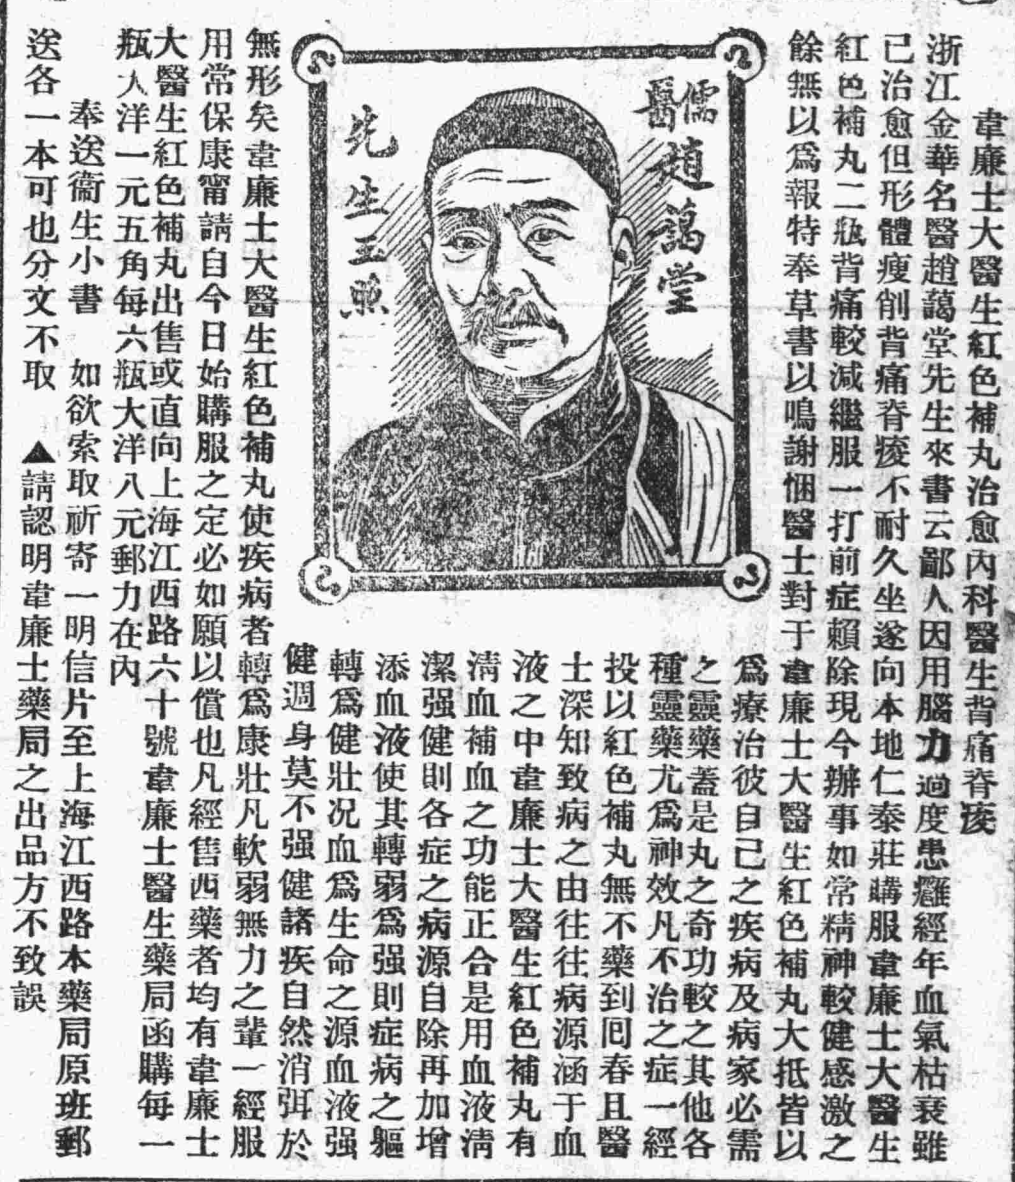 韋廉士大醫生紅色補丸治愈內科醫生背痛脊痠
浙江金華名醫趙藹堂先生來書云鄙人因用腦力過度患癰經年血氣枯衰雖
已治愈但形體瘦削背痛脊痠不耐久坐遂向本地仁泰莊購服韋廉士大醫生
紅色補丸二瓶背痛較減繼服一打前症賴除現今辦事如常精神較健感激之
餘無以爲報特奉草書以鳴謝悃醫士對于韋廉士大醫生紅色補丸大抵皆以
儒醫趙藹堂
先生玉照
爲療治彼自己之疾病及病家必需
之靈藥蓋是丸之奇功較之其他各
種靈藥尤爲神效凡不治之症一經
投以紅色補丸無不藥到囘春且醫
士深知致病之由往往病源涵于血
液之中韋廉士大醫生紅色補丸有
淸血補血之功能正合是用血液淸
潔强健則各症之病源自除再加增
添血液使其轉弱爲强則症病之軀
轉爲健壯况血爲生命之源血液强
健週身莫不强健諸疾自然消弭於
無形矣韋廉士大醫生紅色補丸使疾病者轉爲康壯凡軟弱無力之輩一經服
用常保康甯請自今日始購服之定必如願以償也凡經售西藥者均有韋廉士
大醫生紅色補丸出售或直向上海江西路六十號韋廉士醫生藥局函購每一
瓶大洋一元五角每六瓶大洋八元郵力在內
奉送衞生小書 如欲索取祈寄一明信片至上海江西路本藥局原班郵
送各一本可也分文不取 ▲請認明韋廉士藥局之出品方不致誤